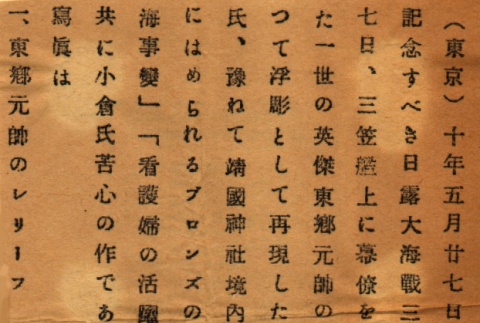 （東京）十年五月廿七日
記念すべき日露大海戰三
七日、三笠艦上に幕僚を
た一世の英傑東鄕元帥の
つて浮彫として再現した
氏、豫ねて靖國神社境內
にはめられるブロンズの
海事變」「看護婦の活躍
共に小倉氏苦心の作であ
寫眞は
一、東鄕元帥のレリーフ